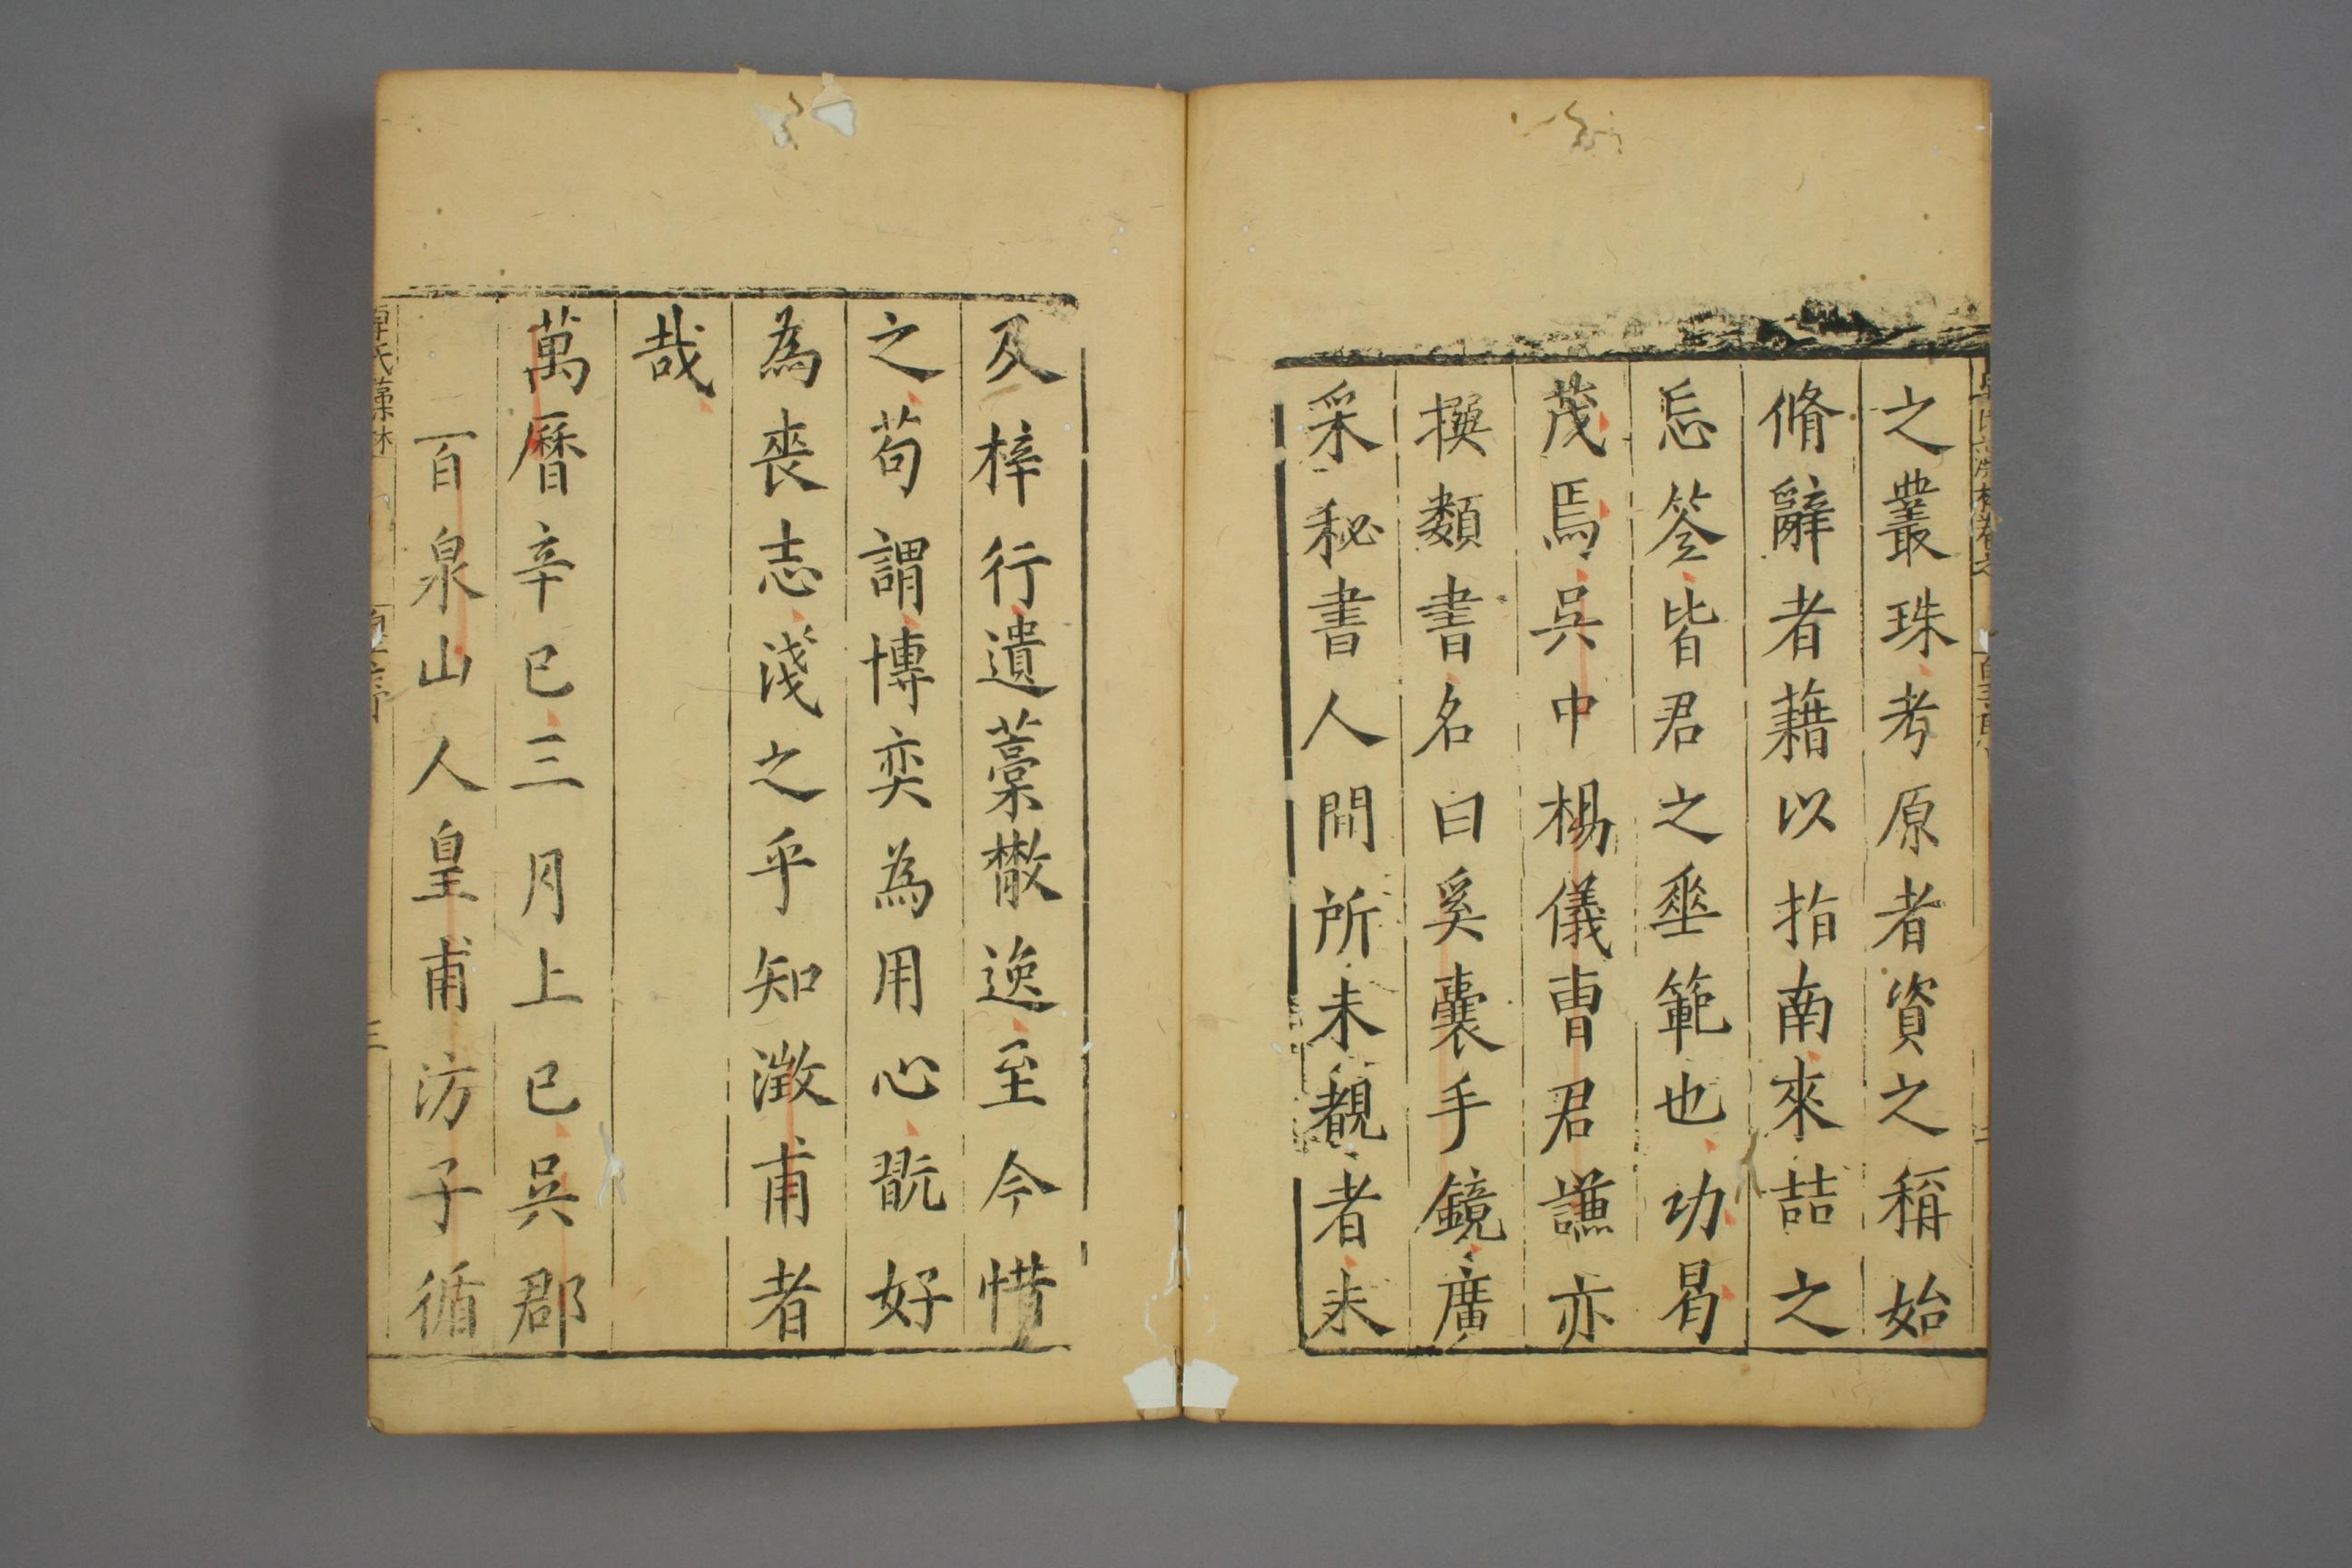 之叢珠考原者資之稱始
脩辭者藉以指南來喆之
忘筌皆君之埀範也功曷
茂焉吳中楊儀曹君謙亦
撰類書名曰奚囊手鏡廣
采秘書人間所未覩者未
及梓行遺藁散逸至今惜
之苟謂博奕為用心翫好
為喪志淺之乎知澂甫者
哉
萬曆辛巳三月上巳吳郡
百泉山人皇甫汸子循
卓氏藻林
三